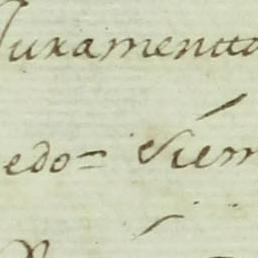 Juramentto
edo= Siem